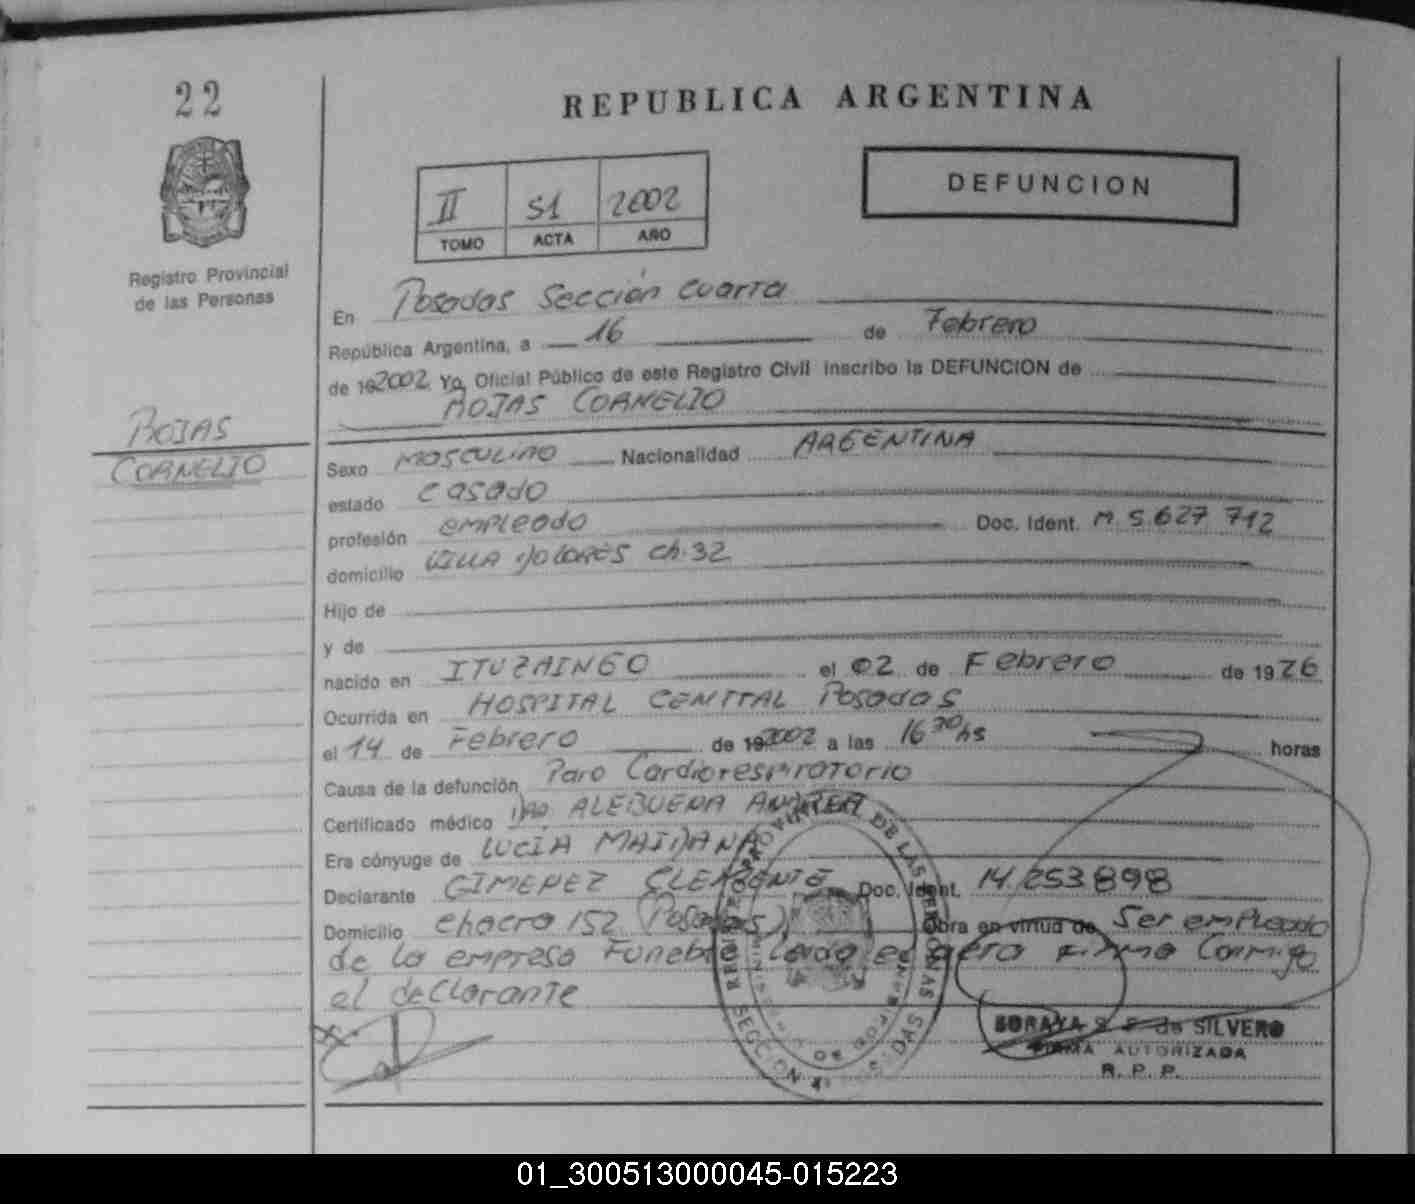 22
REPUBLICA ARGENTINA
DEFUNCION
II 51 2002
TOMO ACTA AÑO
Registro Provincial
de las Personas
En Posadas Sección cuarta
República Argentina, a 16 de Febrero
de 192002 Yo, Oficial Público de este Registro Civil inscribo la DEFUNCION de
ROJAS CORNELIO
ROJAS
CORNELIO
Sexo MASCULINO Nacionalidad ARGENTINA
estado casado
profesión empleado Doc. Ident. M 5.627 712
domicilio VILLA DOLORES ch. 32
Hijo de
y de
nacido en ITUZAINGO el 02 de Febrero de 1926
Ocurrida en HOSPITAL CENTTAL Posadas
el 14 de Febrero de 192002 a las 16 30 hs horas
Causa de la defunción Paro Cardiorespiratorio
Certificado médico Dra. ALEBUENA ANDREA
Era cónyuge de LUCIA MAIDANA
Declarante GIMENEZ CLEMENTE Doc. Ident. 14.253.898
Domicilio chacra 152 (Posadas) Obra en virtud de Ser empleado
de la empresa Funebre Leida el acta firma Conmigo
el declarante
REGISTRO PROVINCIAL DE LAS PERSONAS
SECCION 4ª POSADAS
SORAYA S. F. de SILVERO
FIRMA AUTORIZADA
R. P. P.
01_300513000045-015223